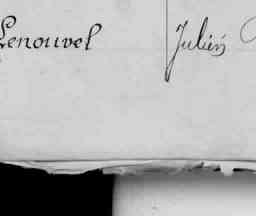 Lenouvel Julien